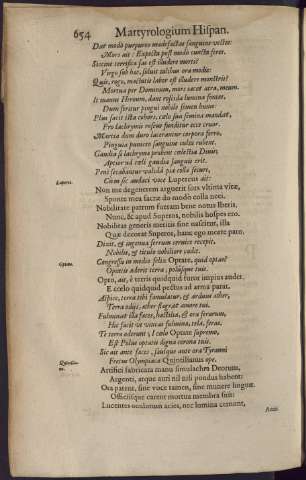 654 Martyrologium Hispan.
Dat modò purpureo madefactas sanguine vestes:
Mors ait: Expecta post modò cuncta feres.
Siccine terrifica fas est illudere morti?
Virgo sub hac, soluit talibus ora modis:
Quis, rogo, mactatis labor est illudere monstris?
Mortua per Dominum, mors jacet atra, meum.
It manus Heroum, dant roscida lumina fontes,
Dum feriunt pugni nobile sæpe
Plus facit ista cohors, cælo sua semina mandat,
Pro lachrymis roseus funditur ore cruor.
Martia dum duro lacerantur corpora ferro,
Pinguia puniceo sanguine culta rubent.
Gaudia si lachrymæ prabent cælestia Divis,
Aptior ad cæli gaudia sanguis erit.
Peni secabantur valida pia colla securi,
Cum sic audaci voce Lupercus ait:
Luperci.
Non me degenerem arguerit sors vltima vitæ,
Sponte mea sacræ do modò colla neci.
Nobilitate patrum fueram bene notus Iberis,
Nunc, & apud Superos, nobilis hospes ero.
Nobilitas generis meritis sine nascitur, illa
Quæ decorat Superos, hanc ego morte paro.
Dixit, & ingenua ferrum cervice recepit,
Nobilis, & titulo nobiliore cadit.
Optati.
Congressu in medio felix Optate, quid optas?
Opinis aderit terra; polusque tuis.
Opto, ait, è terris quidquid furor impius audet,
E cœlo quidquid pectus ad arma parat.
Aspice, terra tibi famulatur, & arduus æther,
Terra odijs, æther flagrat amore tui.
Fulminat illa faces, hastilia, & ora ferarum,
Hic facit vt vincas fulmina, tela, feras.
Te terra oderunt; I cælo Optate supremo,
Est Polus optatis digna corona tuis.
Sic ait ante faces, sævique ante ora Tyranni
Fretus Olympiaca Quintilianus ope.
Quintiliani.
Artifici fabricata manu simulachra Deorum,
Argenti, atque auri nil nisi pondus habent:
Ora patent, sine voce tamen, sine munere linguæ.
Officiisque carent mortua membra suis:
Lucentes oculorum acies, nec lumina cernunt,